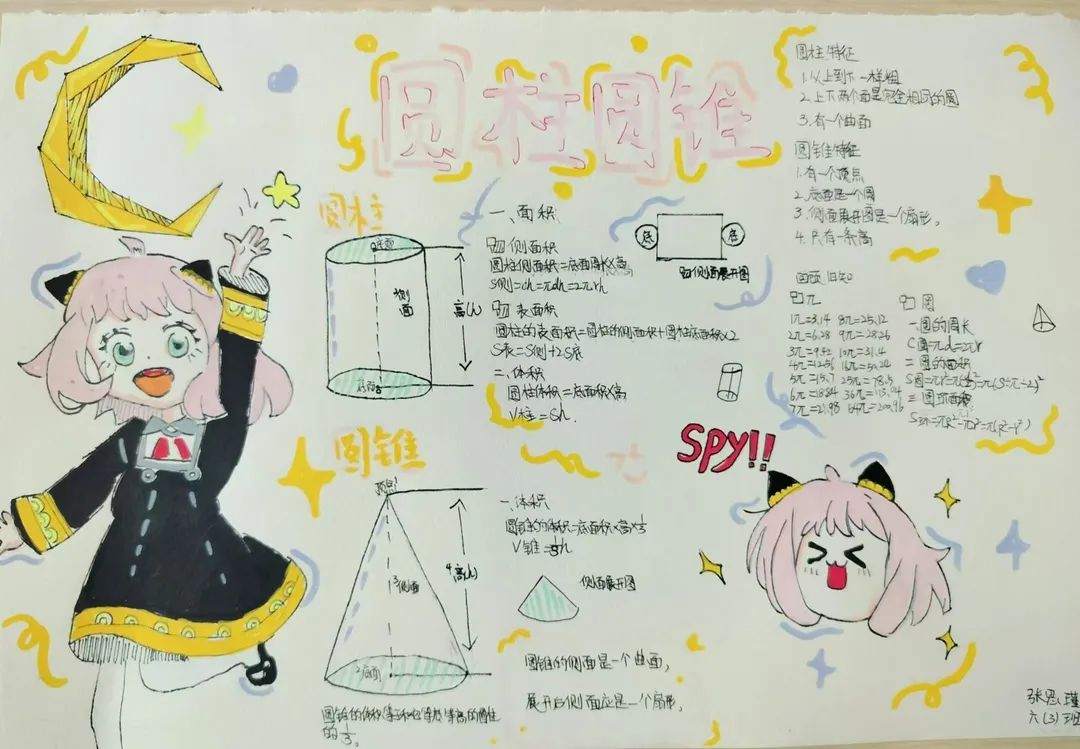 圆柱圆锥
圆柱
底面
侧面
高(h)
底面
一、面积
侧面积
圆柱侧面积=底面周长×高
S侧=ch=πdh=2πrh
表面积
圆柱的表面积=圆柱的侧面积+圆柱底面积×2
S表=S侧+2S底
二、体积
圆柱体积=底面积×高
V柱=Sh.
底
底
侧面展开图
圆柱特征
1.从上到下一样粗
2.上下两个面是完全相同的圆
3.有一个曲面
圆锥特征
1.有一个顶点
2.底面是一个圆
3.侧面展开图是一个扇形。
4.只有一条高
回顾旧知
π
1π=3.14 8π=25.12
2π=6.28 9π=28.26
3π=9.42 10π=31.4
4π=12.56 16π=50.24
5π=15.7 25π=78.5
6π=18.84 36π=113.04
7π=21.98 64π=200.96
圆
一圆的周长
C圆=πd=2πr
二圆的面积
三圆环面积
圆锥
顶点
3侧面
4高(h)
2底面
一、体积
圆锥的体积=底面积×高×⅓
V锥=⅓h
侧面展开图
圆锥的侧面是一个曲面,
展开后侧面应是一个扇形。
的⅓。
SPY!!
张思瑾
六(3)班